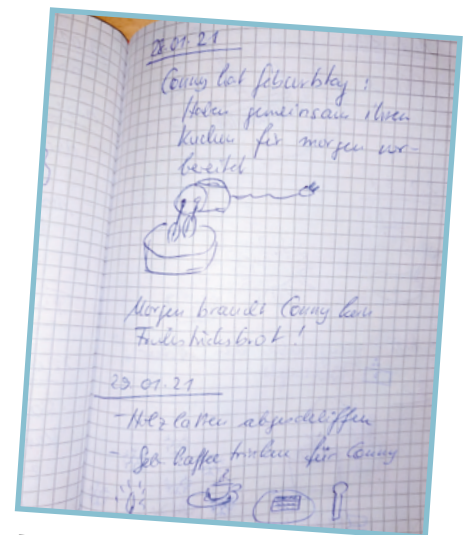 28.01.21
Conny hat Geburtstag!
Haben gemeinsam ihren
Kuchen für morgen vor-
bereitet
Morgen braucht Conny kein
Frühstücksbrot!
29.01.21
- Holzlatten abgeschliffen
- Geb. Kaffee trinken für Conny